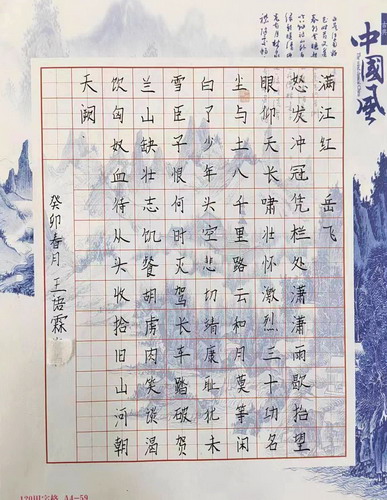 满江红 岳飞
怒发冲冠凭栏处潇潇雨歇抬望
眼仰天长啸壮怀激烈三十功名
尘与土八千里路云和月莫等闲
白了少年头空悲切靖康耻犹未
雪臣子恨何时灭驾长车踏破贺
兰山缺壮志饥餐胡虏肉笑谈渴
饮匈奴血待从头收拾旧山河朝
天阙
癸卯春月 王语霖
中國風
120田字格 A4-59